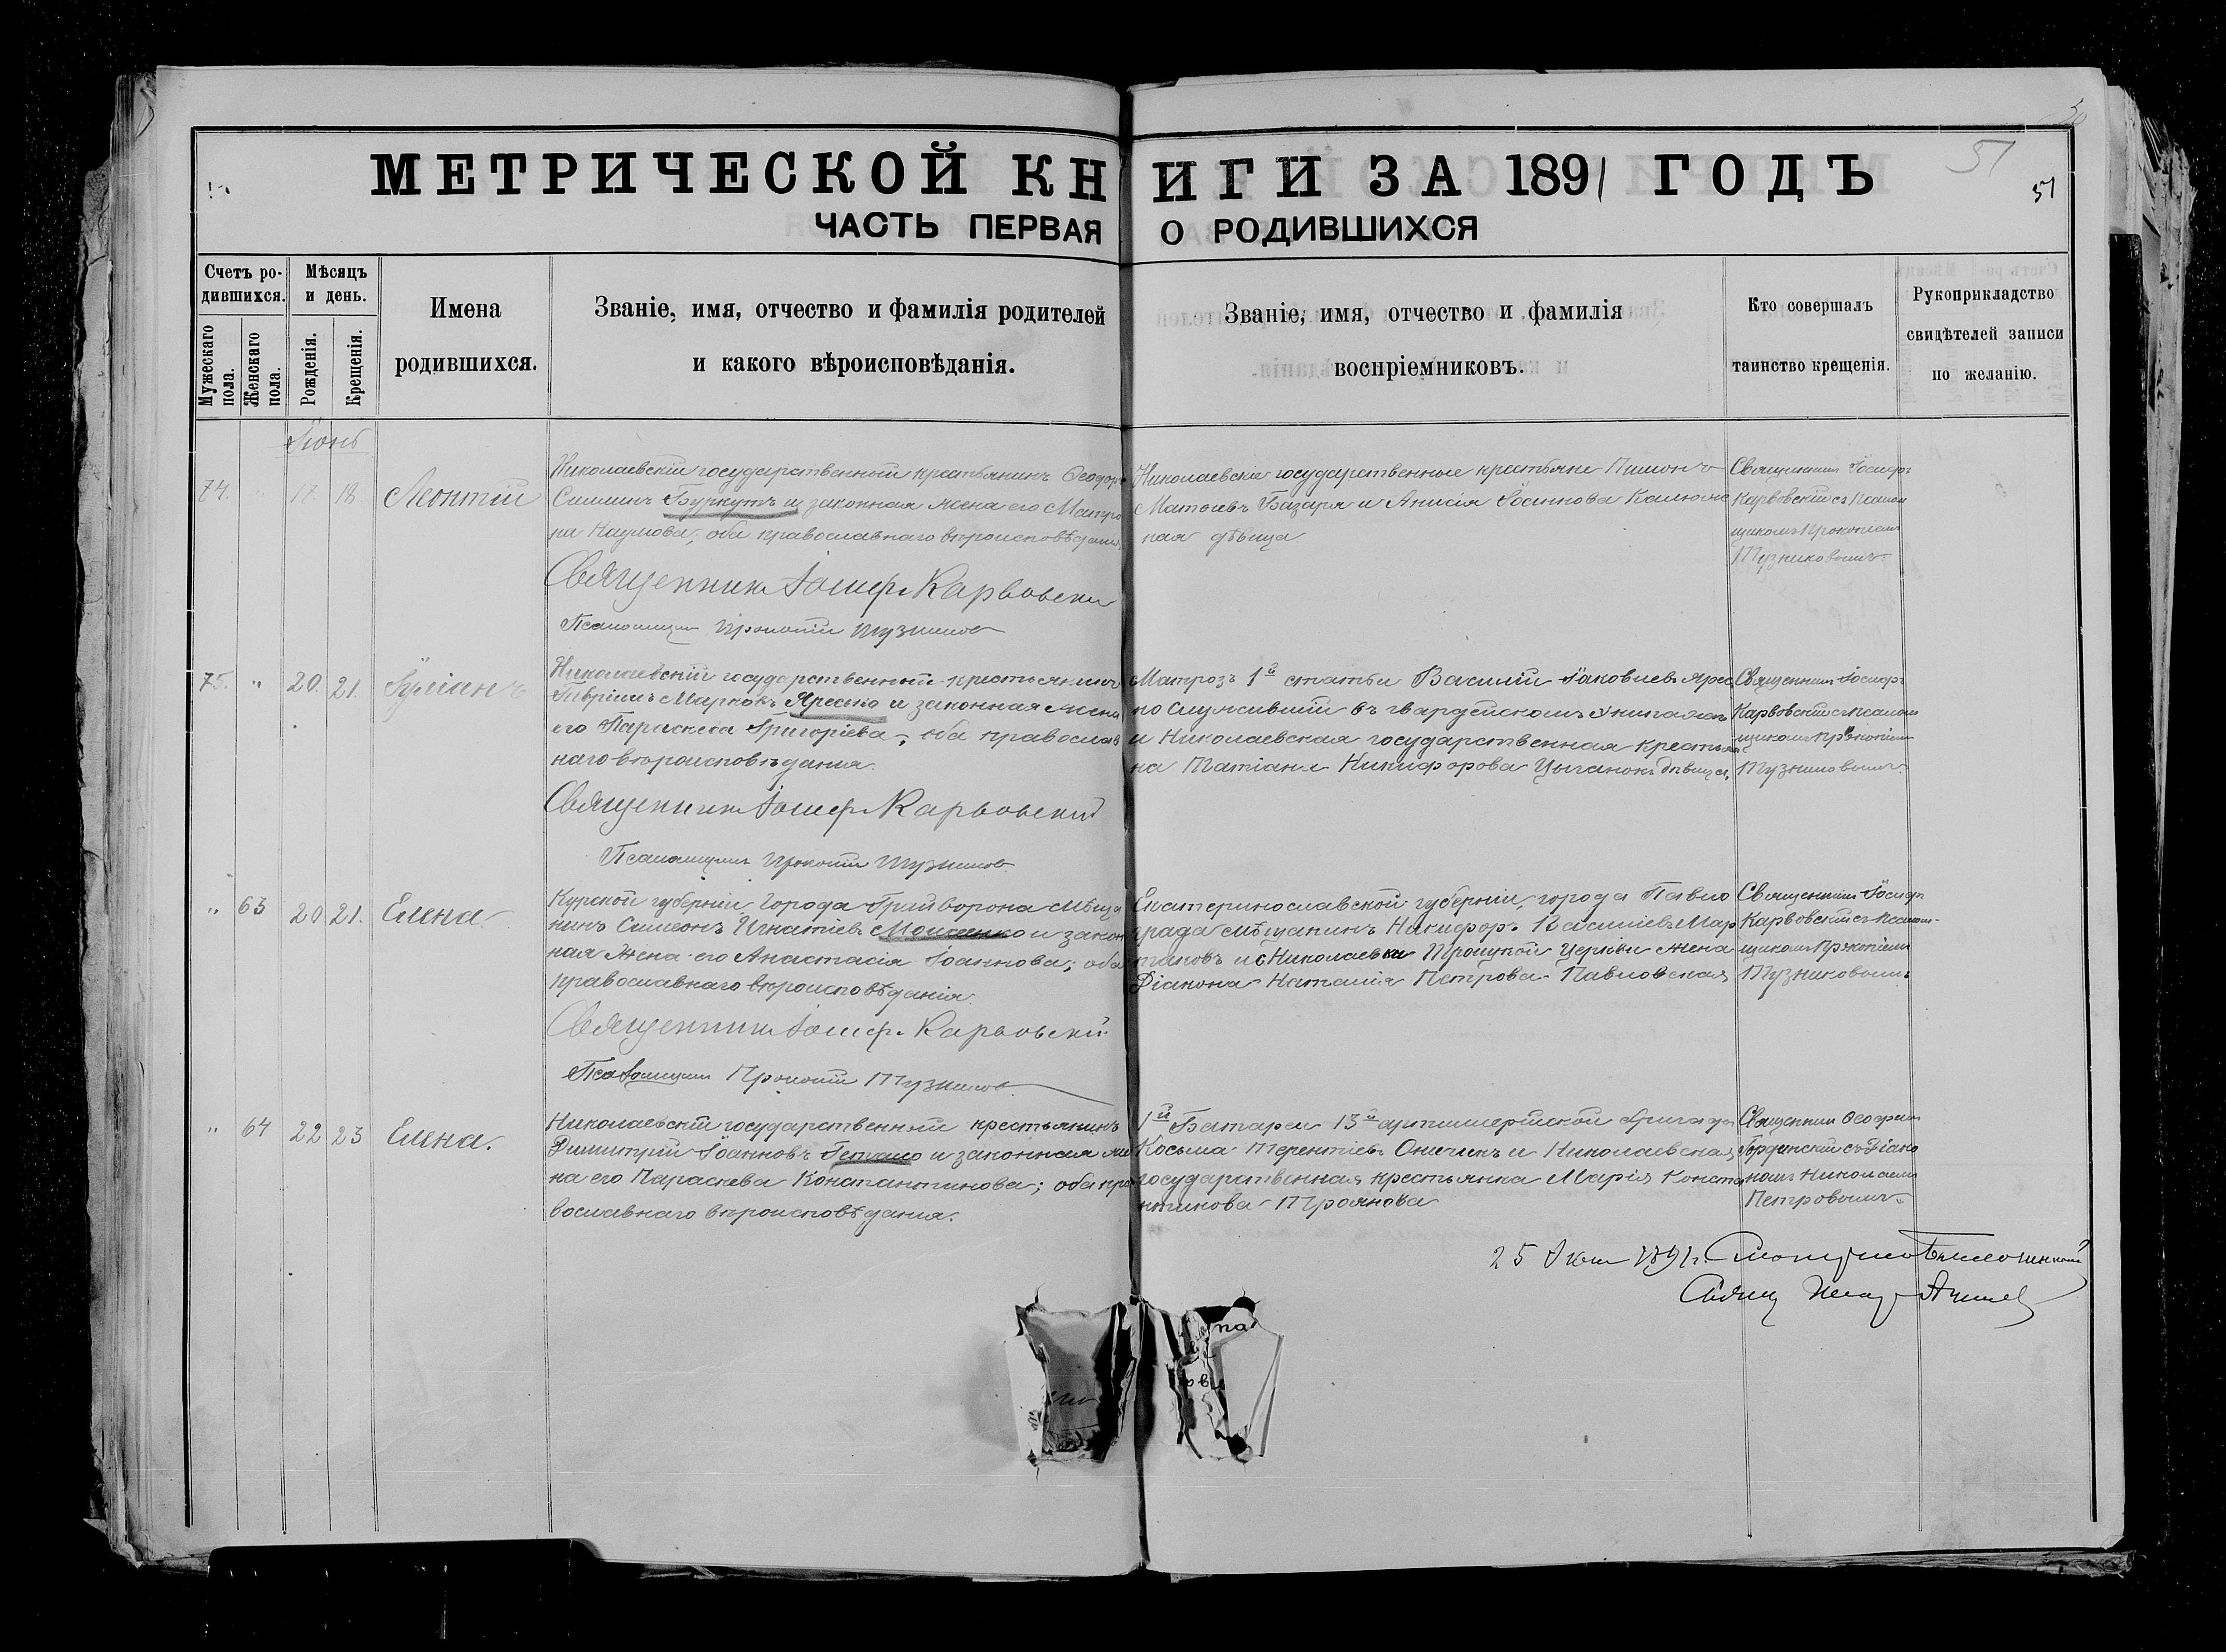 51
51
МЕТРИЧЕСКОЙ КНИГИ ЗА 1891 ГОДЪ
ЧАСТЬ ПЕРВАЯ О РОДИВШИХСЯ
Счетъ родившихся.
Мужескаго пола.
Женскаго пола.
Мѣсяцъ и день.
Рожденія.
Крещенія.
Имена
родившихся.
Званіе, имя, отчество и фамилія родителей
и какого вѣроисповѣданія.
Званіе, имя, отчество и фамилія
воспріемниковъ.
Кто совершалъ
таинство крещенія.
Рукоприкладство
свидѣтелей записи
по желанію.
Іюнь
74. 17. 18. Леонтій
Николаевскій государственный крестьянинъ Ѳеодоръ
Симиинъ Буркутъ и законная жена его Матро
на Наумова; оба православнаго вѣроисповѣданія.
Священникъ Іосифъ Карвовскій
Псаломщикъ Прокопій Тузниковъ
Николаевскіе государственные крестьяне Пимонъ
Матѳіевъ Базаря и Анисія Іоаннова
ная дѣвица.
Священникъ Іосифъ
Карвовскій съ Псалом
щикомъ Прокопіемъ
Тузниковымъ.
75. " 20. 21. Іуліанъ
Николаевскій государственный крестьянинъ
Гавріилъ Марковъ Яресько и законная жена
его Параскева Григоріева; оба православ
наго вѣроисповѣданія.
Священникъ Іосифъ Карвовскій
Псаломщикъ Прокопій Тузниковъ
Матрозъ 1й статьи Василій Іаковлевъ Ярес
ко служившій въ гвардейскомъ Экипажѣ
и Николаевская государственная крестьян
ка Татіана Никифорова Цыганокъ дѣвица,
Священникъ Іосифъ
Карвовскій съ Псалом
щикомъ Прокопіемъ
Тузниковымъ.
" 63 20 21. Елена
Курской губерніи, города Грайворона мѣща
нинъ Симеонъ Игнатіевъ Моисеенко и закон
ная жена его Анастасія Іоаннова; оба
православнаго вѣроисповѣданія.
Священникъ Іосифъ Карвовскій
Псаломщикъ Прокопій Тузниковъ
Екатеринославской губерніи, города Павло
града мѣщанинъ Никифоръ Василіевъ Мар
Николаевка Троицкой Церкви жена
Діакона Наталія Петрова Павловская
Священникъ Іосифъ
Карвовскій съ Псалом-
щикомъ Прокопіемъ
Тузниковымъ
" 64 22 23 Елена.
Николаевскій государственный крестьянинъ
Димитрій Іоанновъ и законная же
на его Параскева Константинова; оба пра
вославнаго вѣроисповѣданія.
1й Батареи 13й артиллерійской бригады
Косьма Терентіевъ Оничинъ и Николаевская
государственная крестьянка Марія Конста
нтинова Троянова
Священникъ
съ Діако
номъ Николаемъ
Петровымъ.
25 1891 г.